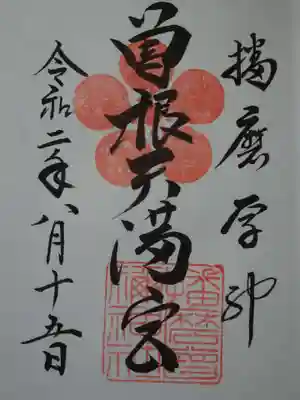 播磨学神
曽根天満宮
令和二年八月十五日